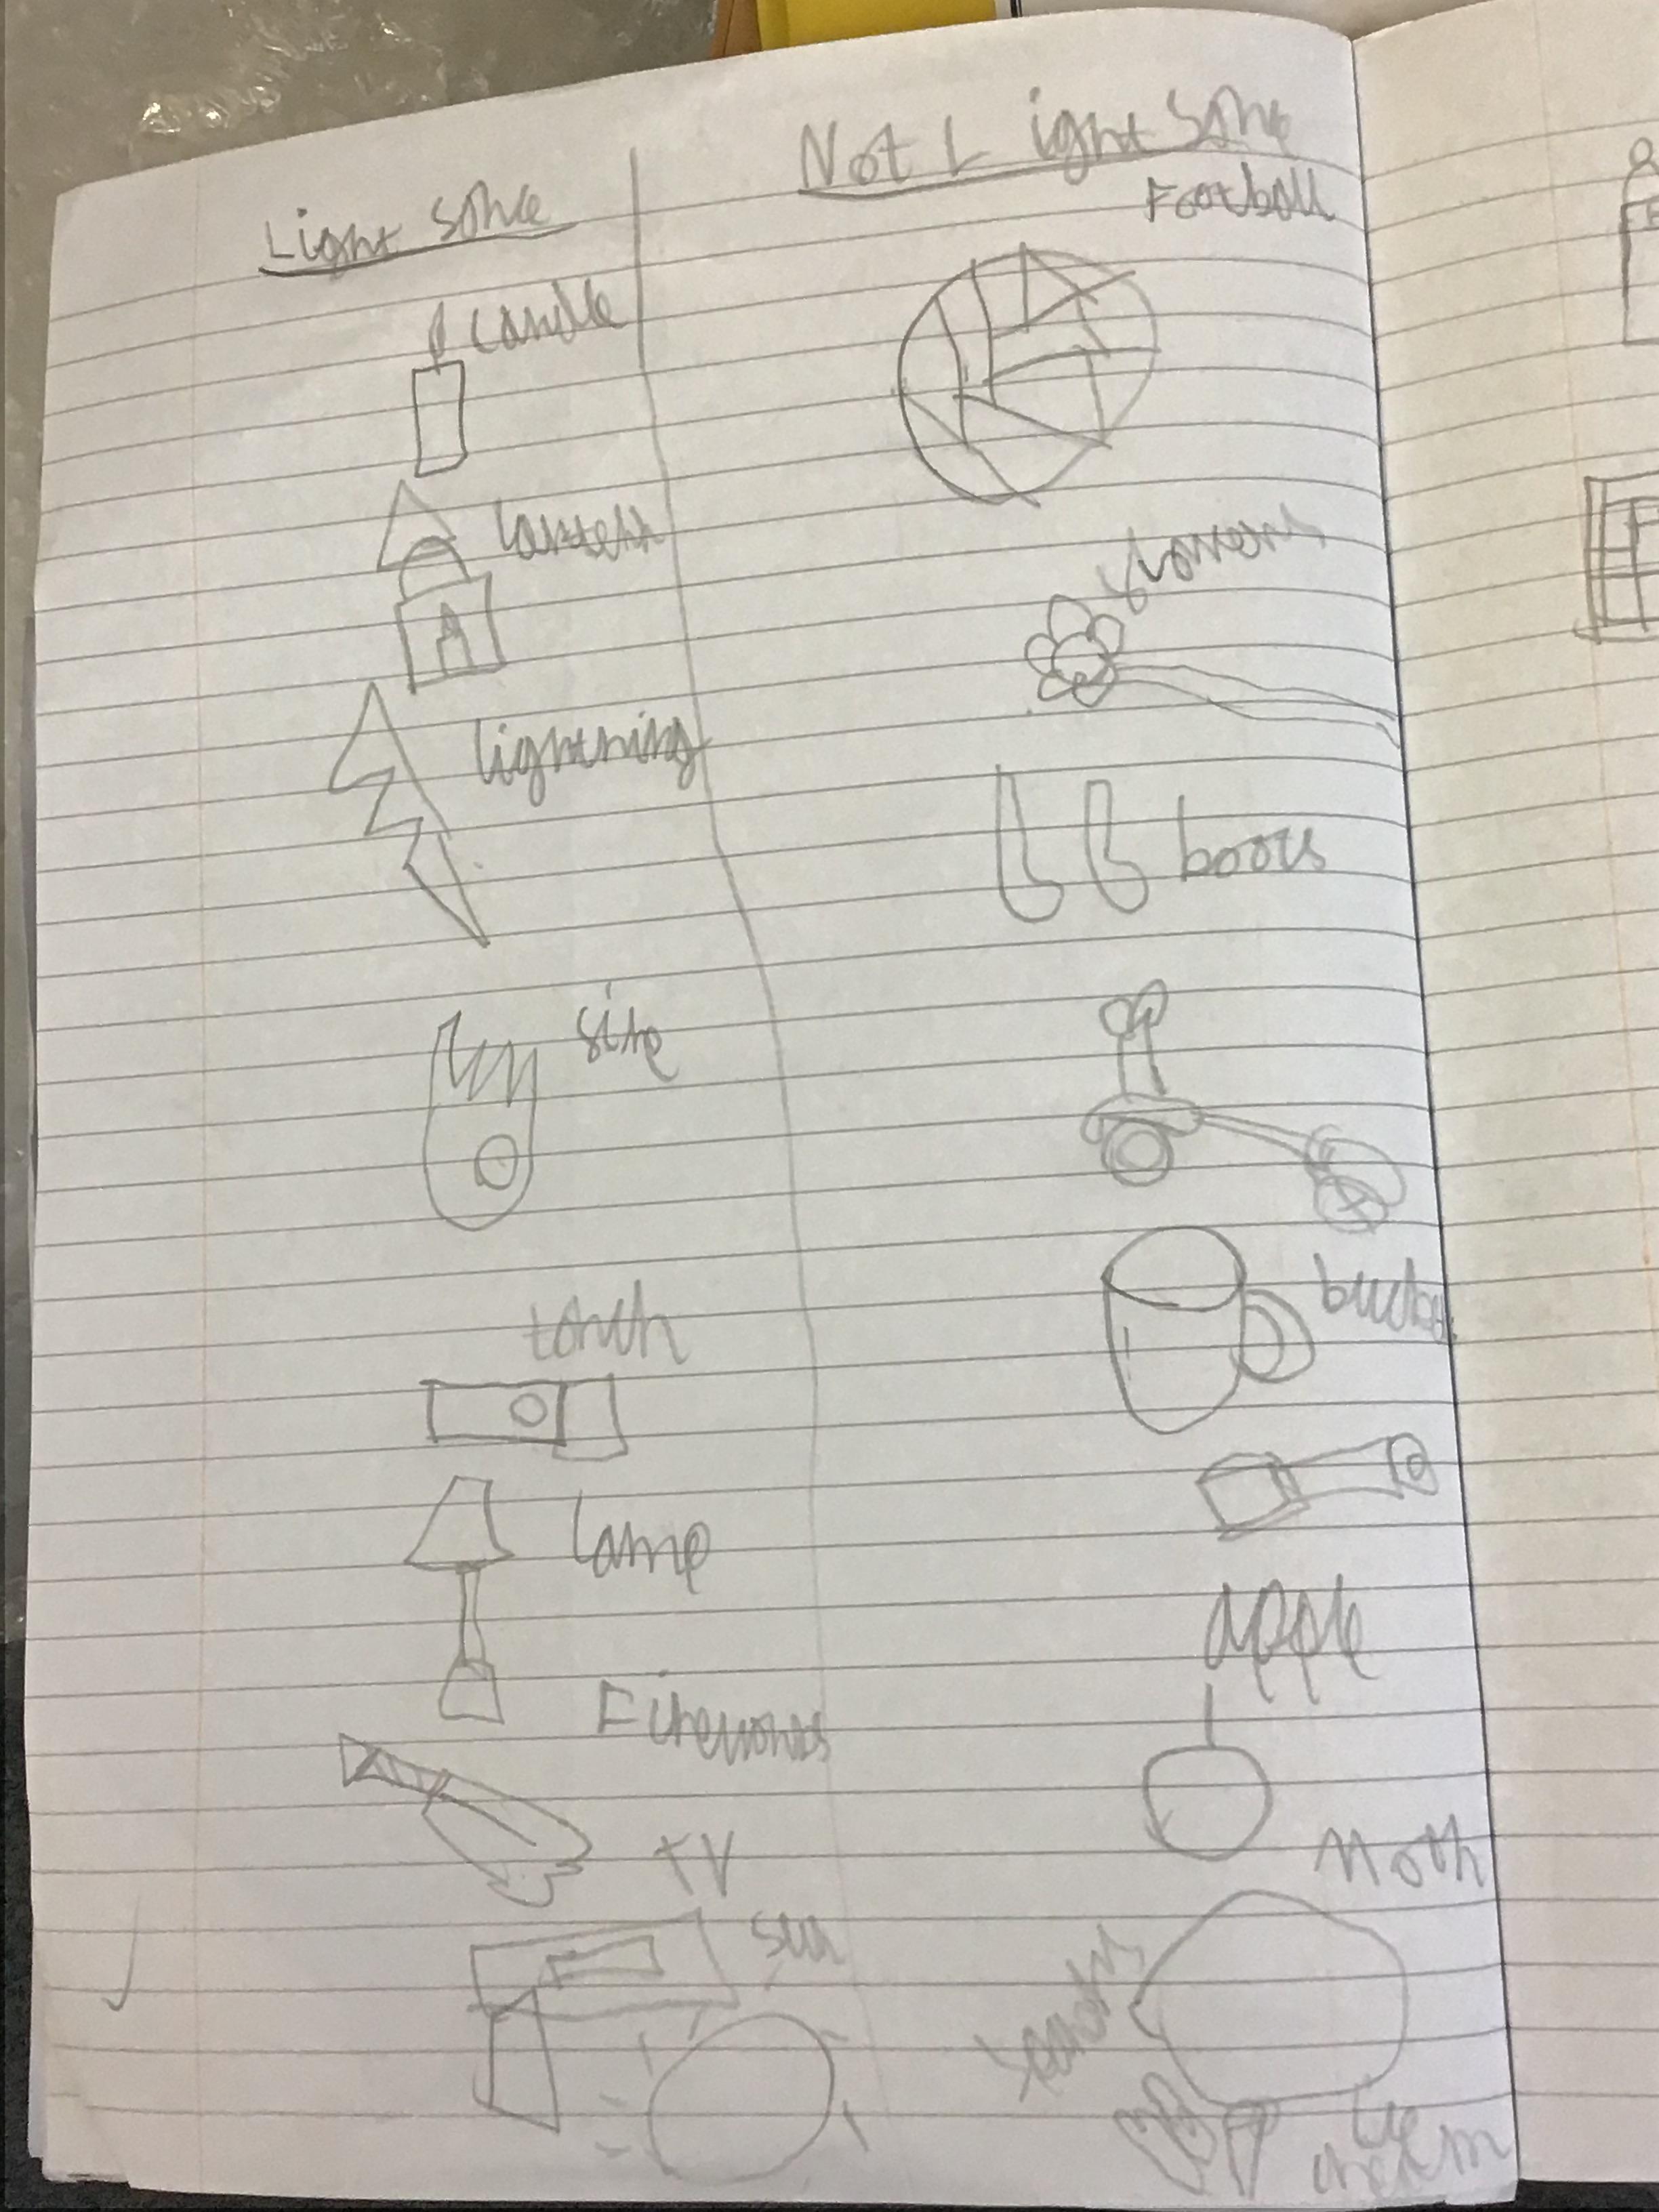 Light Sorce
candle
lantern
lightning
fire
torch
lamp
Fireworks
TV
sun
Not Light Sorce
Football
flowers
boots
bucket
apple
Moon
ice
cream